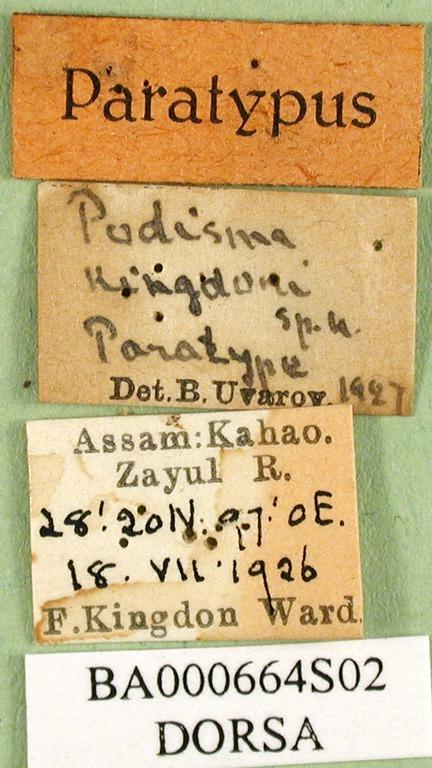 Paratypus
Podisma
kingdoni
sp. n.
Paratype
Det. B. Uvarov. 1927
Assam: Kahao.
Zayul R.
28°.20N. 97°0E.
18. VII. 1926
F. Kingdon Ward.
BA000664S02
DORSA